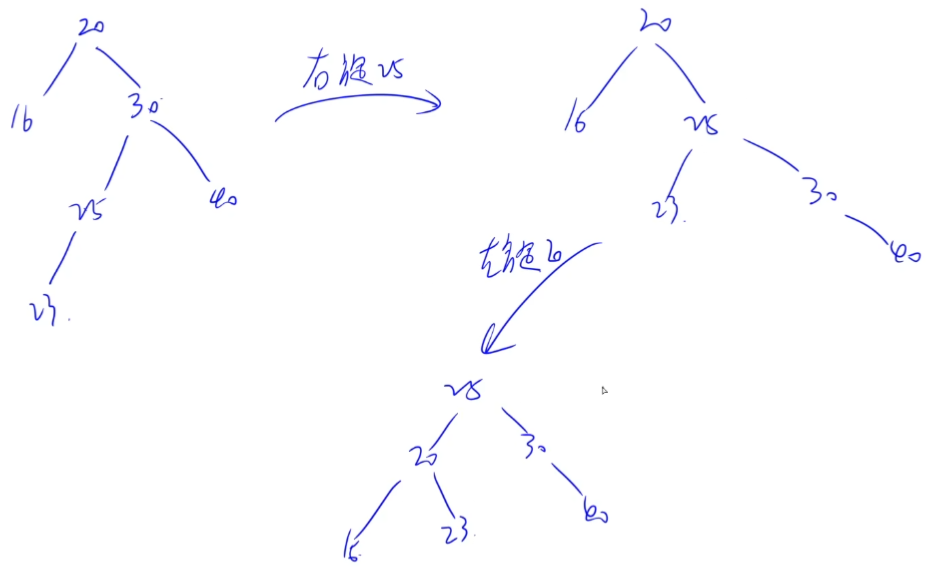 20
16
30
25
40
23
右旋25
20
16
25
23
30
40
左旋20
25
20
30
16
23
40